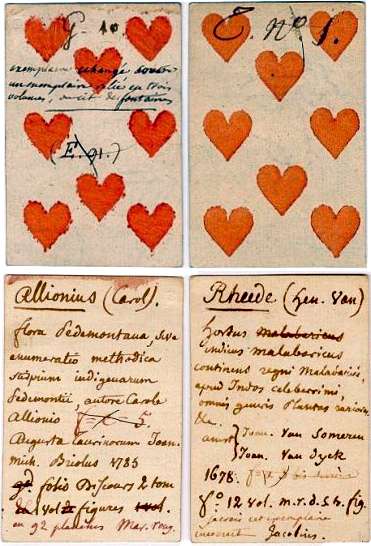 G. 10
exemplaire échangé contre
un exemplaire relié en trois
volumes, du cit. desfontaines
(E. 91.)
C. N° 1.
Allionius (Carol).
flora Pedemontana, sive
enumeratio methodica
stirpium indigenarum
Pedemontii, autore Carolo
Allionio 5.
Augusta taurinorum Joan.
Mich. Briolus 1785
folio Discours 2 tom
vol figures 1 vol.
en 92 planches Mar. roug.
Rheede (hen. Van)
hortus malabaricus
indicus malabaricus
continens regni Malabarici,
apud Indos celeberrimi,
omnis generis Plantas rariores
&c.
amst Joan. Van Someren
Joan. Van Dyck
1678.
f° 12 vol. m.r.d.s.tr. fig.
exemplaire
Jacobins.